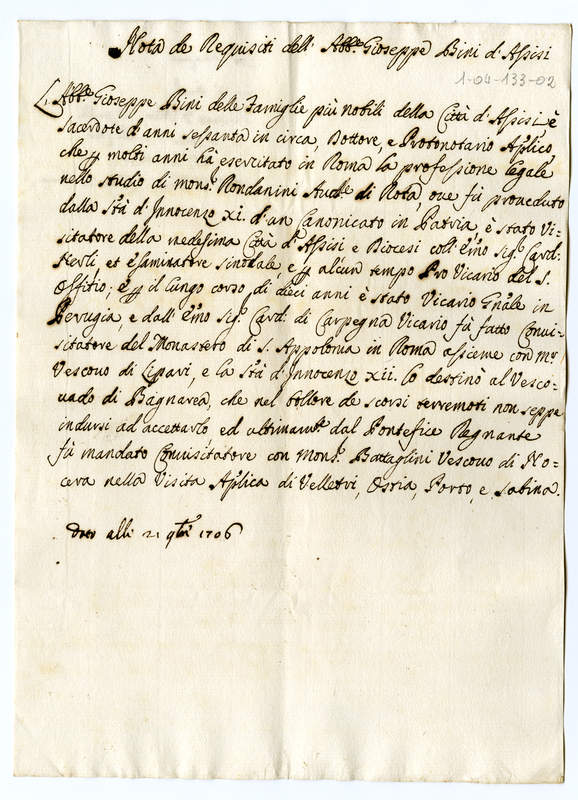 Nota de Requisiti dell' Abbe. Gioseppe Bini d'Assisi
1-04-133-02
L'Abbe. Gioseppe Bini delle Famiglie più nobili della Città d'Assisi è
sacerdote d'anni sessanta in circa, Dottore, e Protonotario Aplico,
che p molti anni hà esercitato in Roma la professione legale
nello studio di mons.r Rondanini Audre di Rota, ove fù proveduto
dalla Stà d'Innocenzo XI. d'un Canonicato in Patria, è stato Vi=
sitatore della medesima Città d'Assisi e Diocesi coll' Emo Sig.r Card.
Nerli, et esaminatore sinodale, e p alcun tempo Pro Vicario del S.
Offitio; e p il lungo corso di dieci anni è stato Vicario Gnale in
Perugia, e dall' Emo Sig.r Card. di Carpegna Vicario fù fatto Convi=
sitatore del Monastero di S. Appolonia in Roma assieme con mr
Vescovo di Lipari, e la Stà d'Innocenzo XII. lo destinò al Vesco=
vado di Bagnarea, che nel bollore de scorsi terremoti non seppe
indursi ad accettarlo ed ultimamte dal Pontefice Regnante
fù mandato Convisitatore con Mons.r Battaglini Vescovo di No=
cera nella Visita Aplica di Velletri, Ostria, Porto, e Sabina.
Dato alli 21 9bre 1706